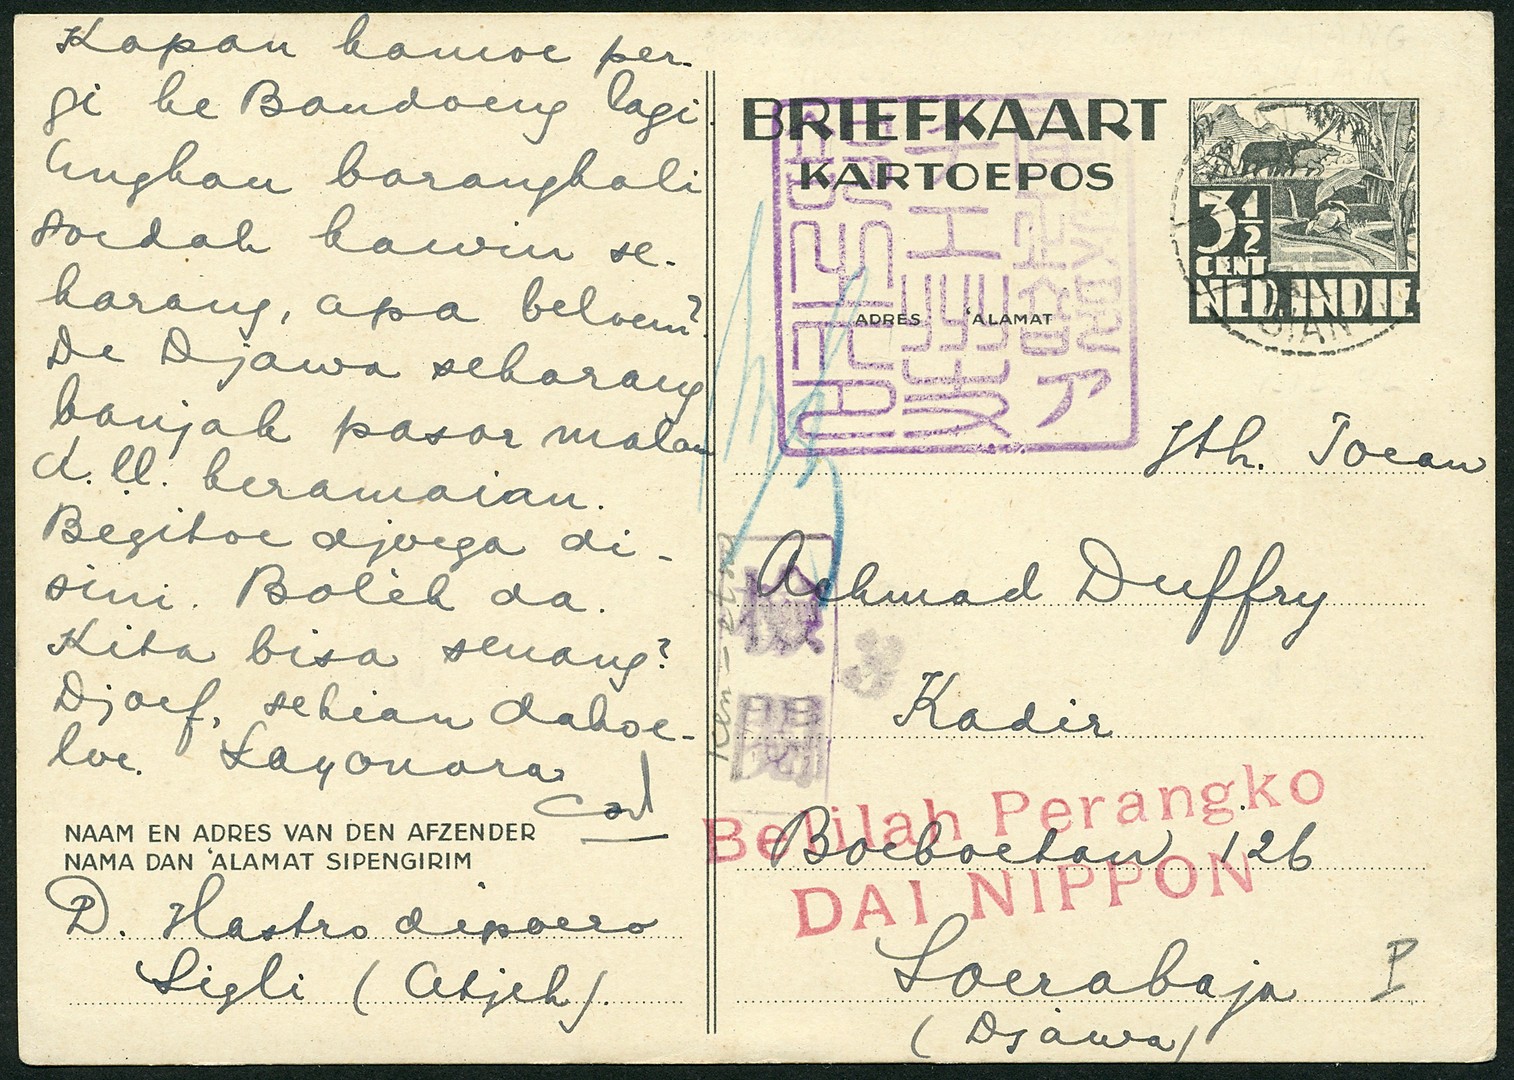 Kapan kamoe per-
gi ke Bandoeng lagi.
Engkau barangkali
soedah kawin se-
karang, apa beloem?
De Djawa sekarang
banjak pasar malam
d.ll. keramaian.
Begitoe djoega di-
sini. Boléh da.
Kita bisa senang?
Djoef, sekian dahoe-
loe. Sayonara
NAAM EN ADRES VAN DEN AFZENDER
NAMA DAN 'ALAMAT SIPENGIRIM
D. Hastrodipoero
Sigli (Atjeh).
BRIEFKAART
KARTOEPOS
3½
CENT
NED. INDIE
ADRES 'ALAMAT
Jth. Toean
Achmad Duffry
Kadir
Boeboetan 126
Soerabaja
(Djawa)
Belilah Perangko
DAI NIPPON
検閲
P